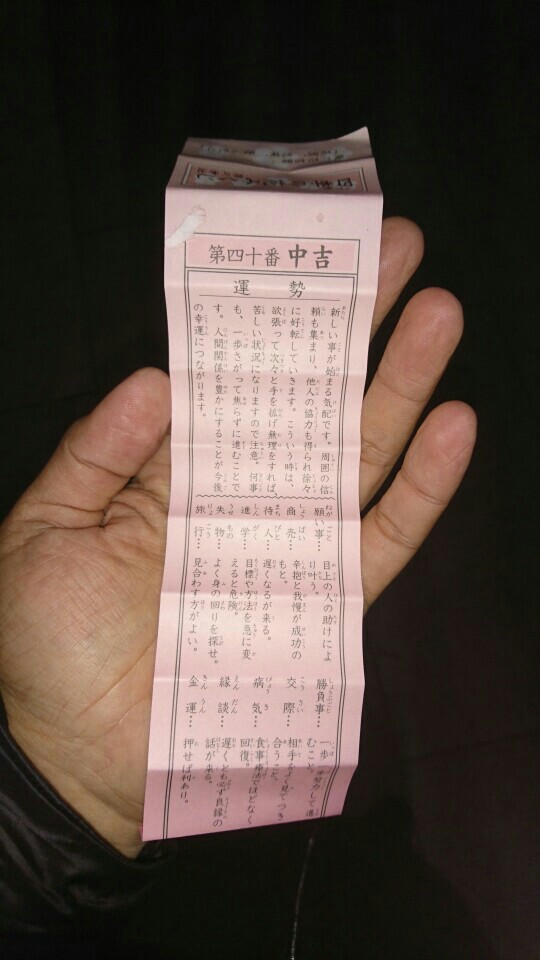 第四十番 中吉
運勢
新しい事が始まる気配です。周囲の信
頼も集まり、他人の協力も得られ徐々
に好転していきます。こういう時は、
欲張って次々と手を拡げ無理をすれば、
苦しい状況になりますので注意。何事
も、一歩さがって焦らずに進むことで
す。人間関係を豊かにすることが今後
の幸運につながります。
願い事…目上の人の助けによ
り叶う。
商売…辛抱と我慢が成功の
もと。
待人…遅くなるが来る。
進学…目標や方法を急に変
えると危険。
失物…よく身の回りを探せ。
旅行…見合わす方がよい。
勝負事…一歩一歩努力して進
むこと。
交際…相手をよく見てつき
合うこと。
病気…食事療法でほどなく
回復。
縁談…遅くとも必ず良縁の
話が来る。
金運…押せば利あり。